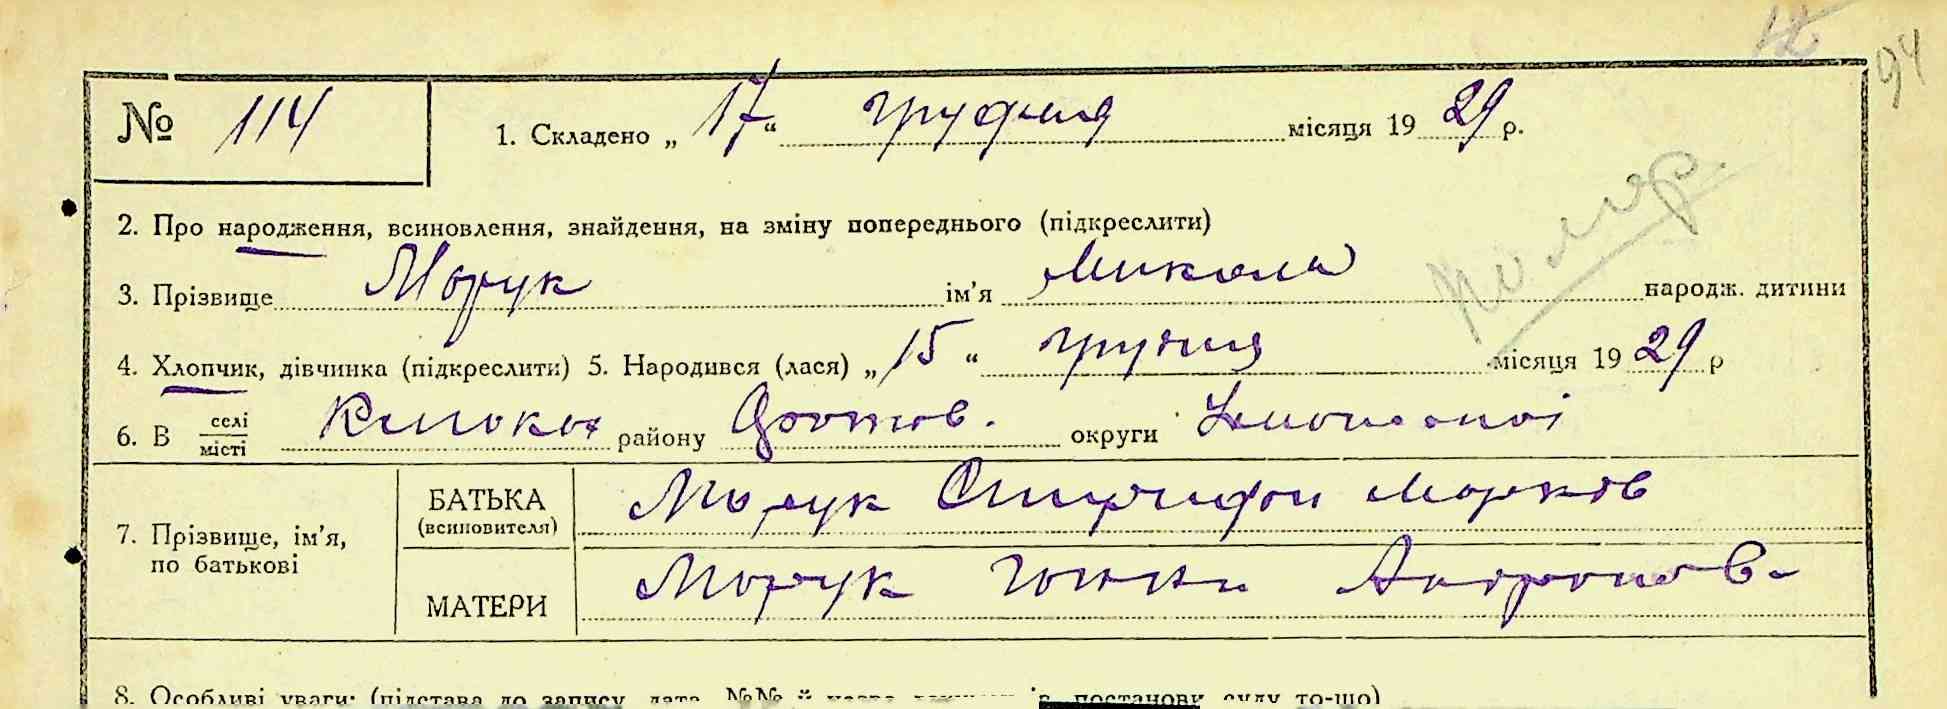 94
№ 114 1. Складено „ 17 “ грудня місяця 19 29 р.
2. Про народження, всиновлення, знайдення, на зміну попереднього (підкреслити)
3. Прізвище Марук ім’я Микола народж. дитини
помр.
4. Хлопчик, дівчинка (підкреслити) 5. Народився (лася) „ 15 “ грудня місяця 19 29 р
6. В селі місті району округи
7. Прізвище, ім’я, по батькові
БАТЬКА (всиновителя) Марук Спиридон Марков
МАТЕРИ Марук Ганна Андронов.
8. Особливі уваги: (підстава до запису, дата, №№ й назва постанови суду то-що)